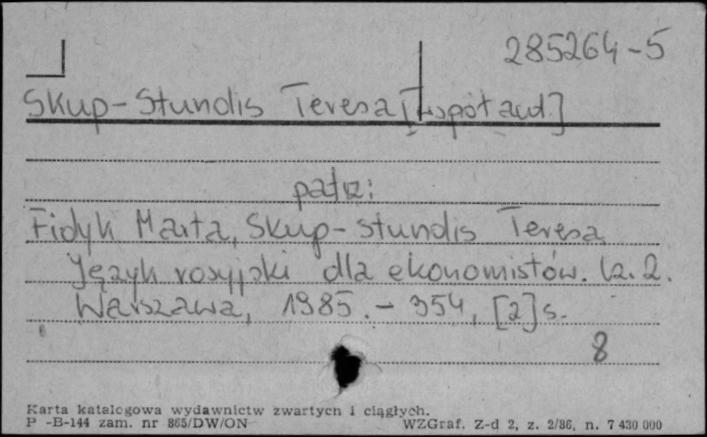 285264-5
Skup-Stundis Teresa [współaut.]
patrz:
Fidyk Marta, Skup-Stundis Teresa
Język rosyjski dla ekonomistów. Cz. 2.
Warszawa, 1985. - 354, [2] s.
8
Karta katalogowa wydawnictw zwartych i ciągłych.
P -B-144 zam. nr 865/DW/ON WZGraf. Z-d 2, z. 2/86, n. 7 430 000